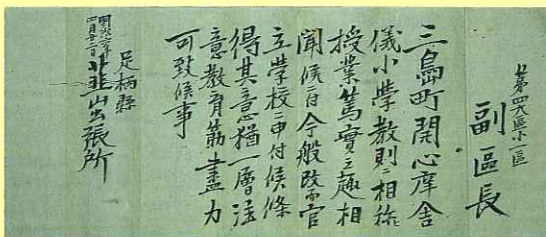 第四大區小一區
副區長
三島町開心庠舎
儀小学教則ニ相称
授業篤實之趣相
聞候ニ付今般改而官
立学校ニ申付候條
得其意猶一層注
意教育筋盡力
可致候事
足柄縣
明治六年
四月廿二日
韮山出張所